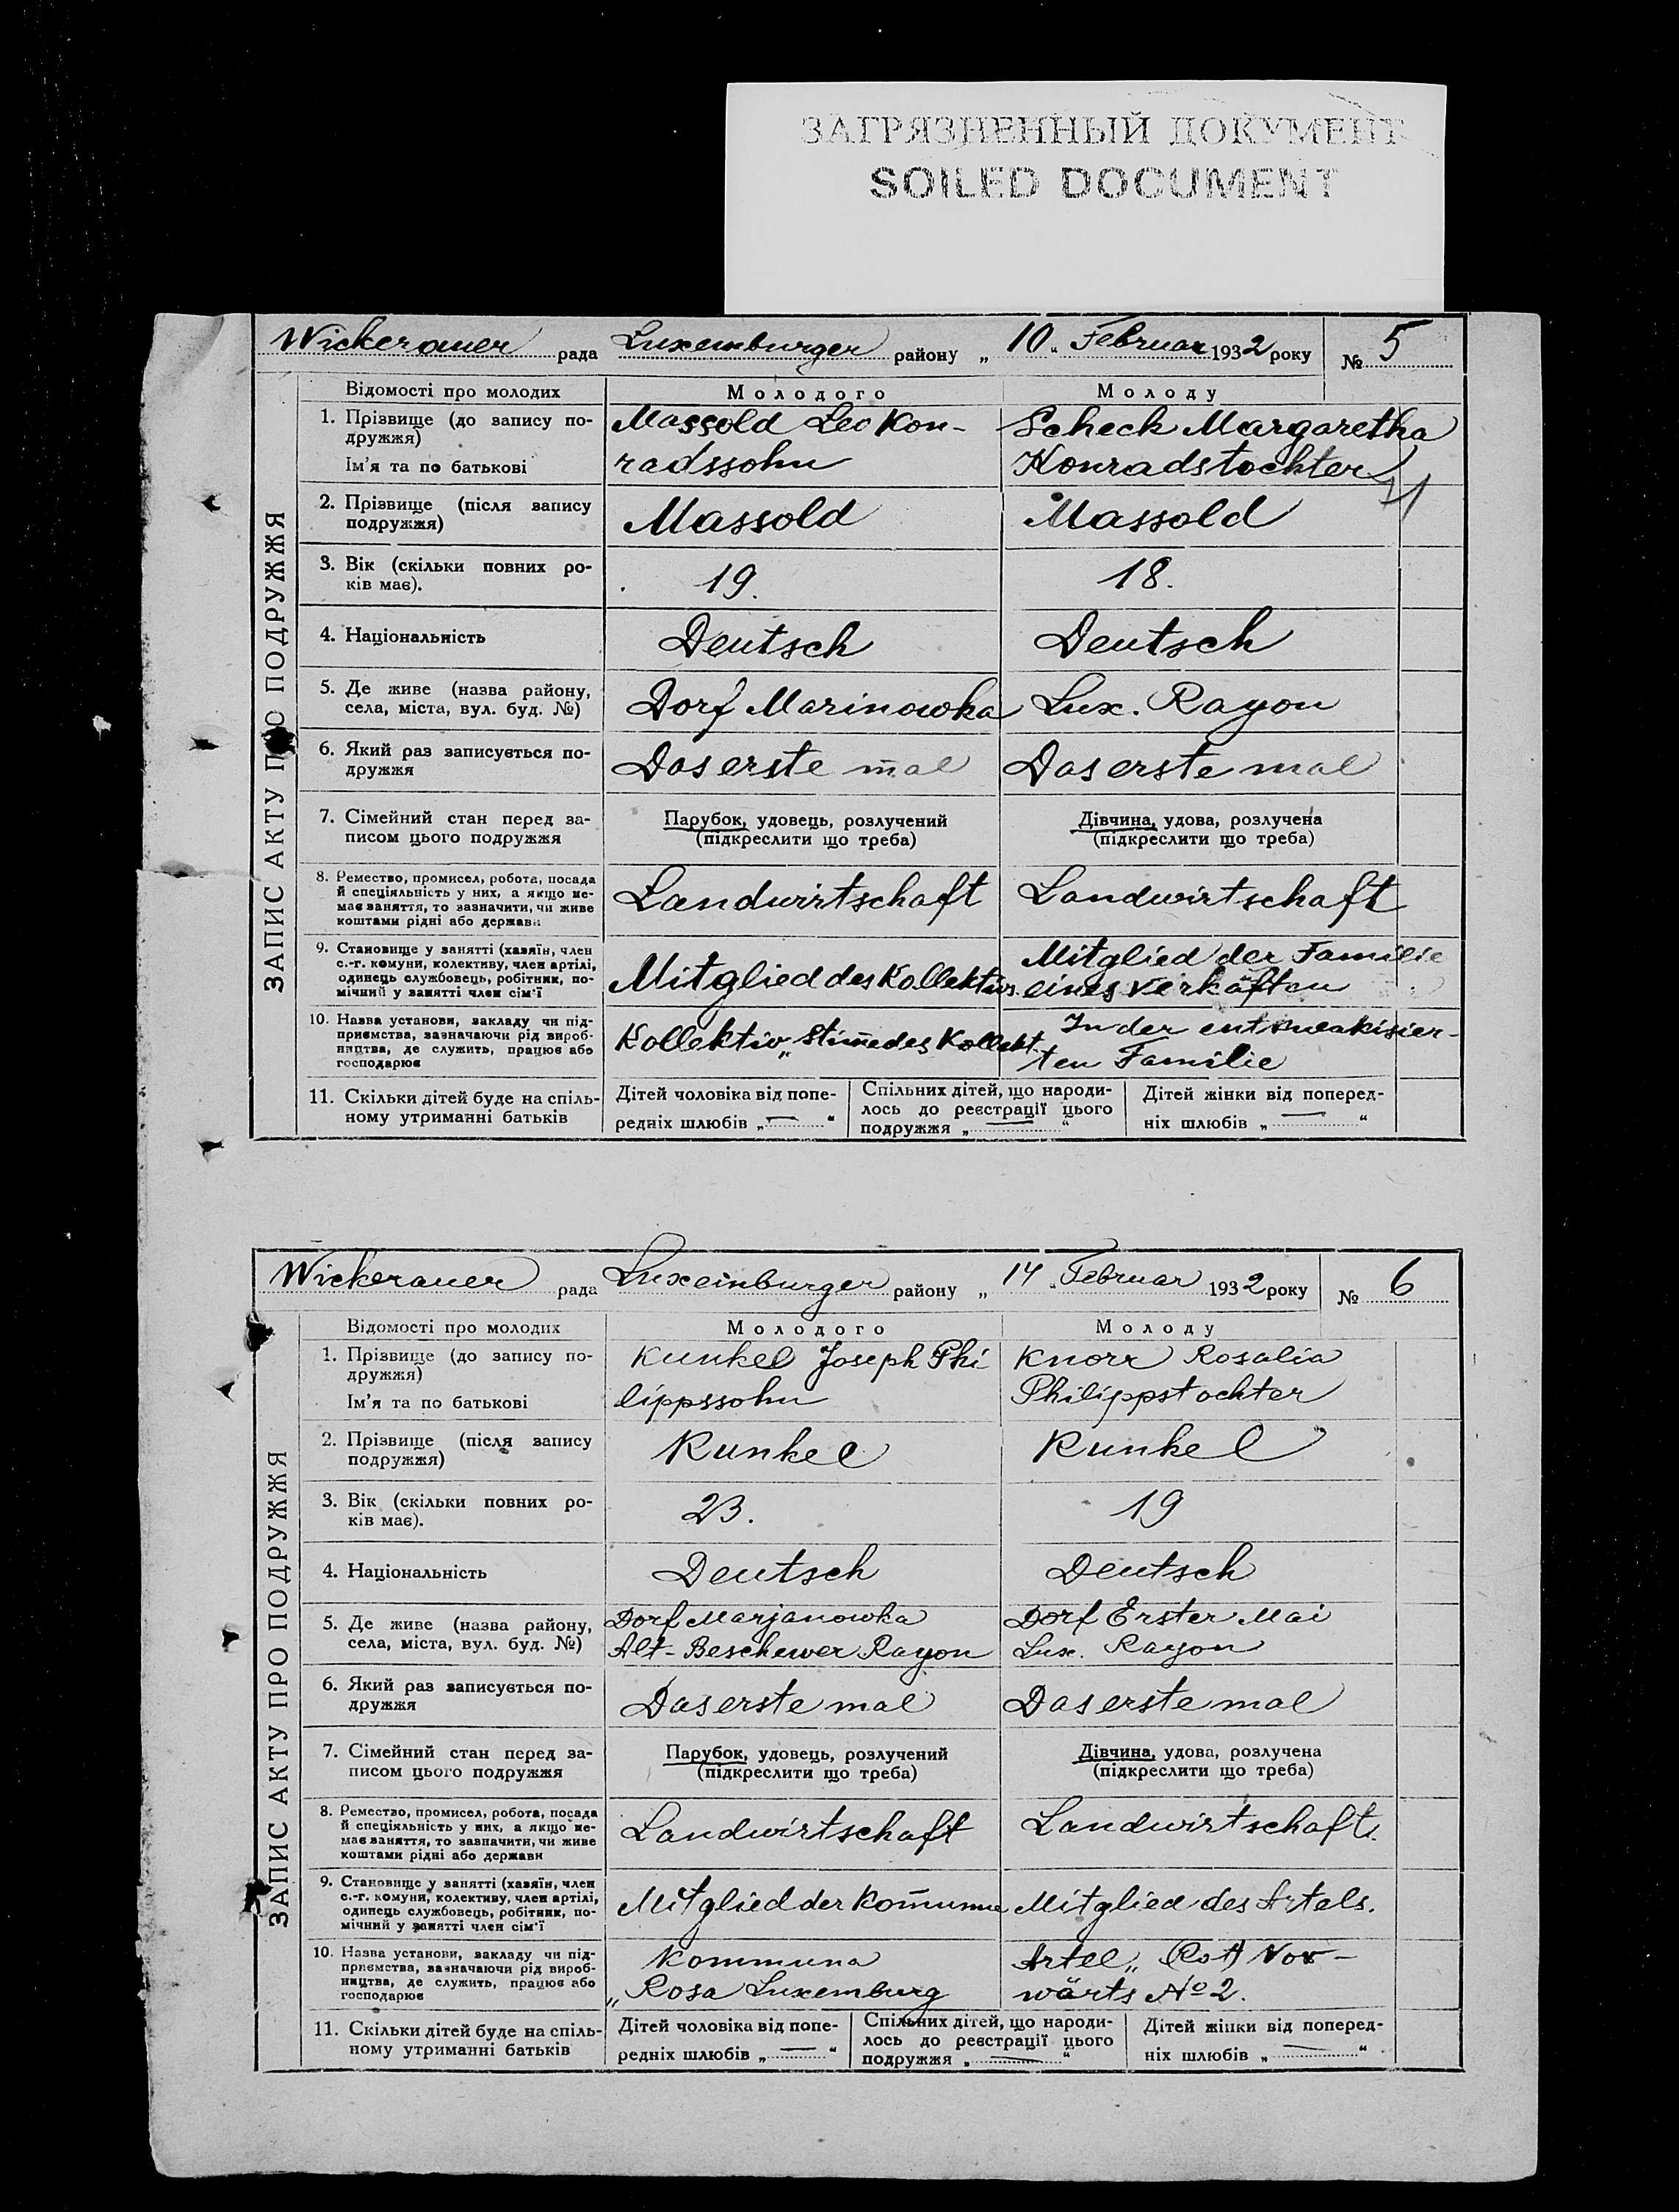 ЗАГРЯЗНЕННЫЙ ДОКУМЕНТ
SOILED DOCUMENT
Wickerauer рада Luxemburger району „ 10 “ Februar 1932 року № 5
ЗАПИС АКТУ ПРО ПОДРУЖЖЯ
Відомості про молодих Молодого Молоду
1. Прізвище (до запису по- Massold Leo Kon- Scheck Margaretha
дружжя)
Ім'я та по батькові radssohn Konradstochter
2. Прізвище (після запису Massold Massold
подружжя)
3. Вік (скільки повних ро- 19. 18.
ків має).
4. Національність Deutsch Deutsch
5. Де живе (назва району, Dorf Marinowka Lux. Rayon
села, міста, вул. буд. №)
6. Який раз записується по- Das erste mal Das erste mal
дружжя
7. Сімейний стан перед за- Парубок, удовець, розлучений Дівчина, удова, розлучена
писом цього подружжя (підкреслити що треба) (підкреслити що треба)
8. Ремество, промисел, робота, посада
й спеціяльність у них, а якщо не- Landwirtschaft Landwirtschaft
має заняття, то зазначити, чи живе
коштами рідні або держави
9. Становище у занятті (хазяїн, член Mitglied der Familie
с.-г. комуни, колективу, член артілі,
одинець службовець, робітник, по- Mitglied des Kollektivs. eines
мічний у занятті член сім'ї
10. Назва установи, закладу чи під- In der
приємства, зазначаючи рід вироб- Kollektiv „Stim̄e des Kollekt.
ництва, де служить, працює або ten Familie
господарює
11. Скільки дітей буде на спіль- Дітей чоловіка від попе- Спільних дітей, що народи- Дітей жінки від поперед-
ному утриманні батьків редніх шлюбів „ — “ лось до реєстрації цього ніх шлюбів „ — “
подружжя „ — “
Wickerauer рада Luxemburger району „ 14 “ Februar 1932 року № 6
ЗАПИС АКТУ ПРО ПОДРУЖЖЯ
Відомості про молодих Молодого Молоду
1. Прізвище (до запису по- Kunkel Joseph Phi Knorr Rosalia
дружжя)
Ім'я та по батькові lippssohn Philippstochter
2. Прізвище (після запису Kunkel Kunkel
подружжя)
3. Вік (скільки повних ро- 23. 19
ків має).
4. Національність Deutsch Deutsch
5. Де живе (назва району, Dorf Marjanowka Dorf Erster Mai
села, міста, вул. буд. №) Alt-Beschewer Rayon Lux. Rayon
6. Який раз записується по- Das erste mal Das erste mal
дружжя
7. Сімейний стан перед за- Парубок, удовець, розлучений Дівчина, удова, розлучена
писом цього подружжя (підкреслити що треба) (підкреслити що треба)
8. Ремество, промисел, робота, посада
й спеціяльність у них, а якщо не- Landwirtschaft Landwirtschaft.
має заняття, то зазначити, чи живе
коштами рідні або держави
9. Становище у занятті (хазяїн, член
с.-г. комуни, колективу, член артілі,
одинець службовець, робітник, по- Mitglied der Kom̄une Mitglied des Artels.
мічний у занятті член сім'ї
10. Назва установи, закладу чи під- Kommuna Artel „ (Rot) Vor-
приємства, зазначаючи рід вироб-
ництва, де служить, працює або „Rosa Luxemburg wärts № 2.
господарює
11. Скільки дітей буде на спіль- Дітей чоловіка від попе- Спільних дітей, що народи- Дітей жінки від поперед-
ному утриманні батьків редніх шлюбів „ — “ лось до реєстрації цього ніх шлюбів „ — “
подружжя „ — “